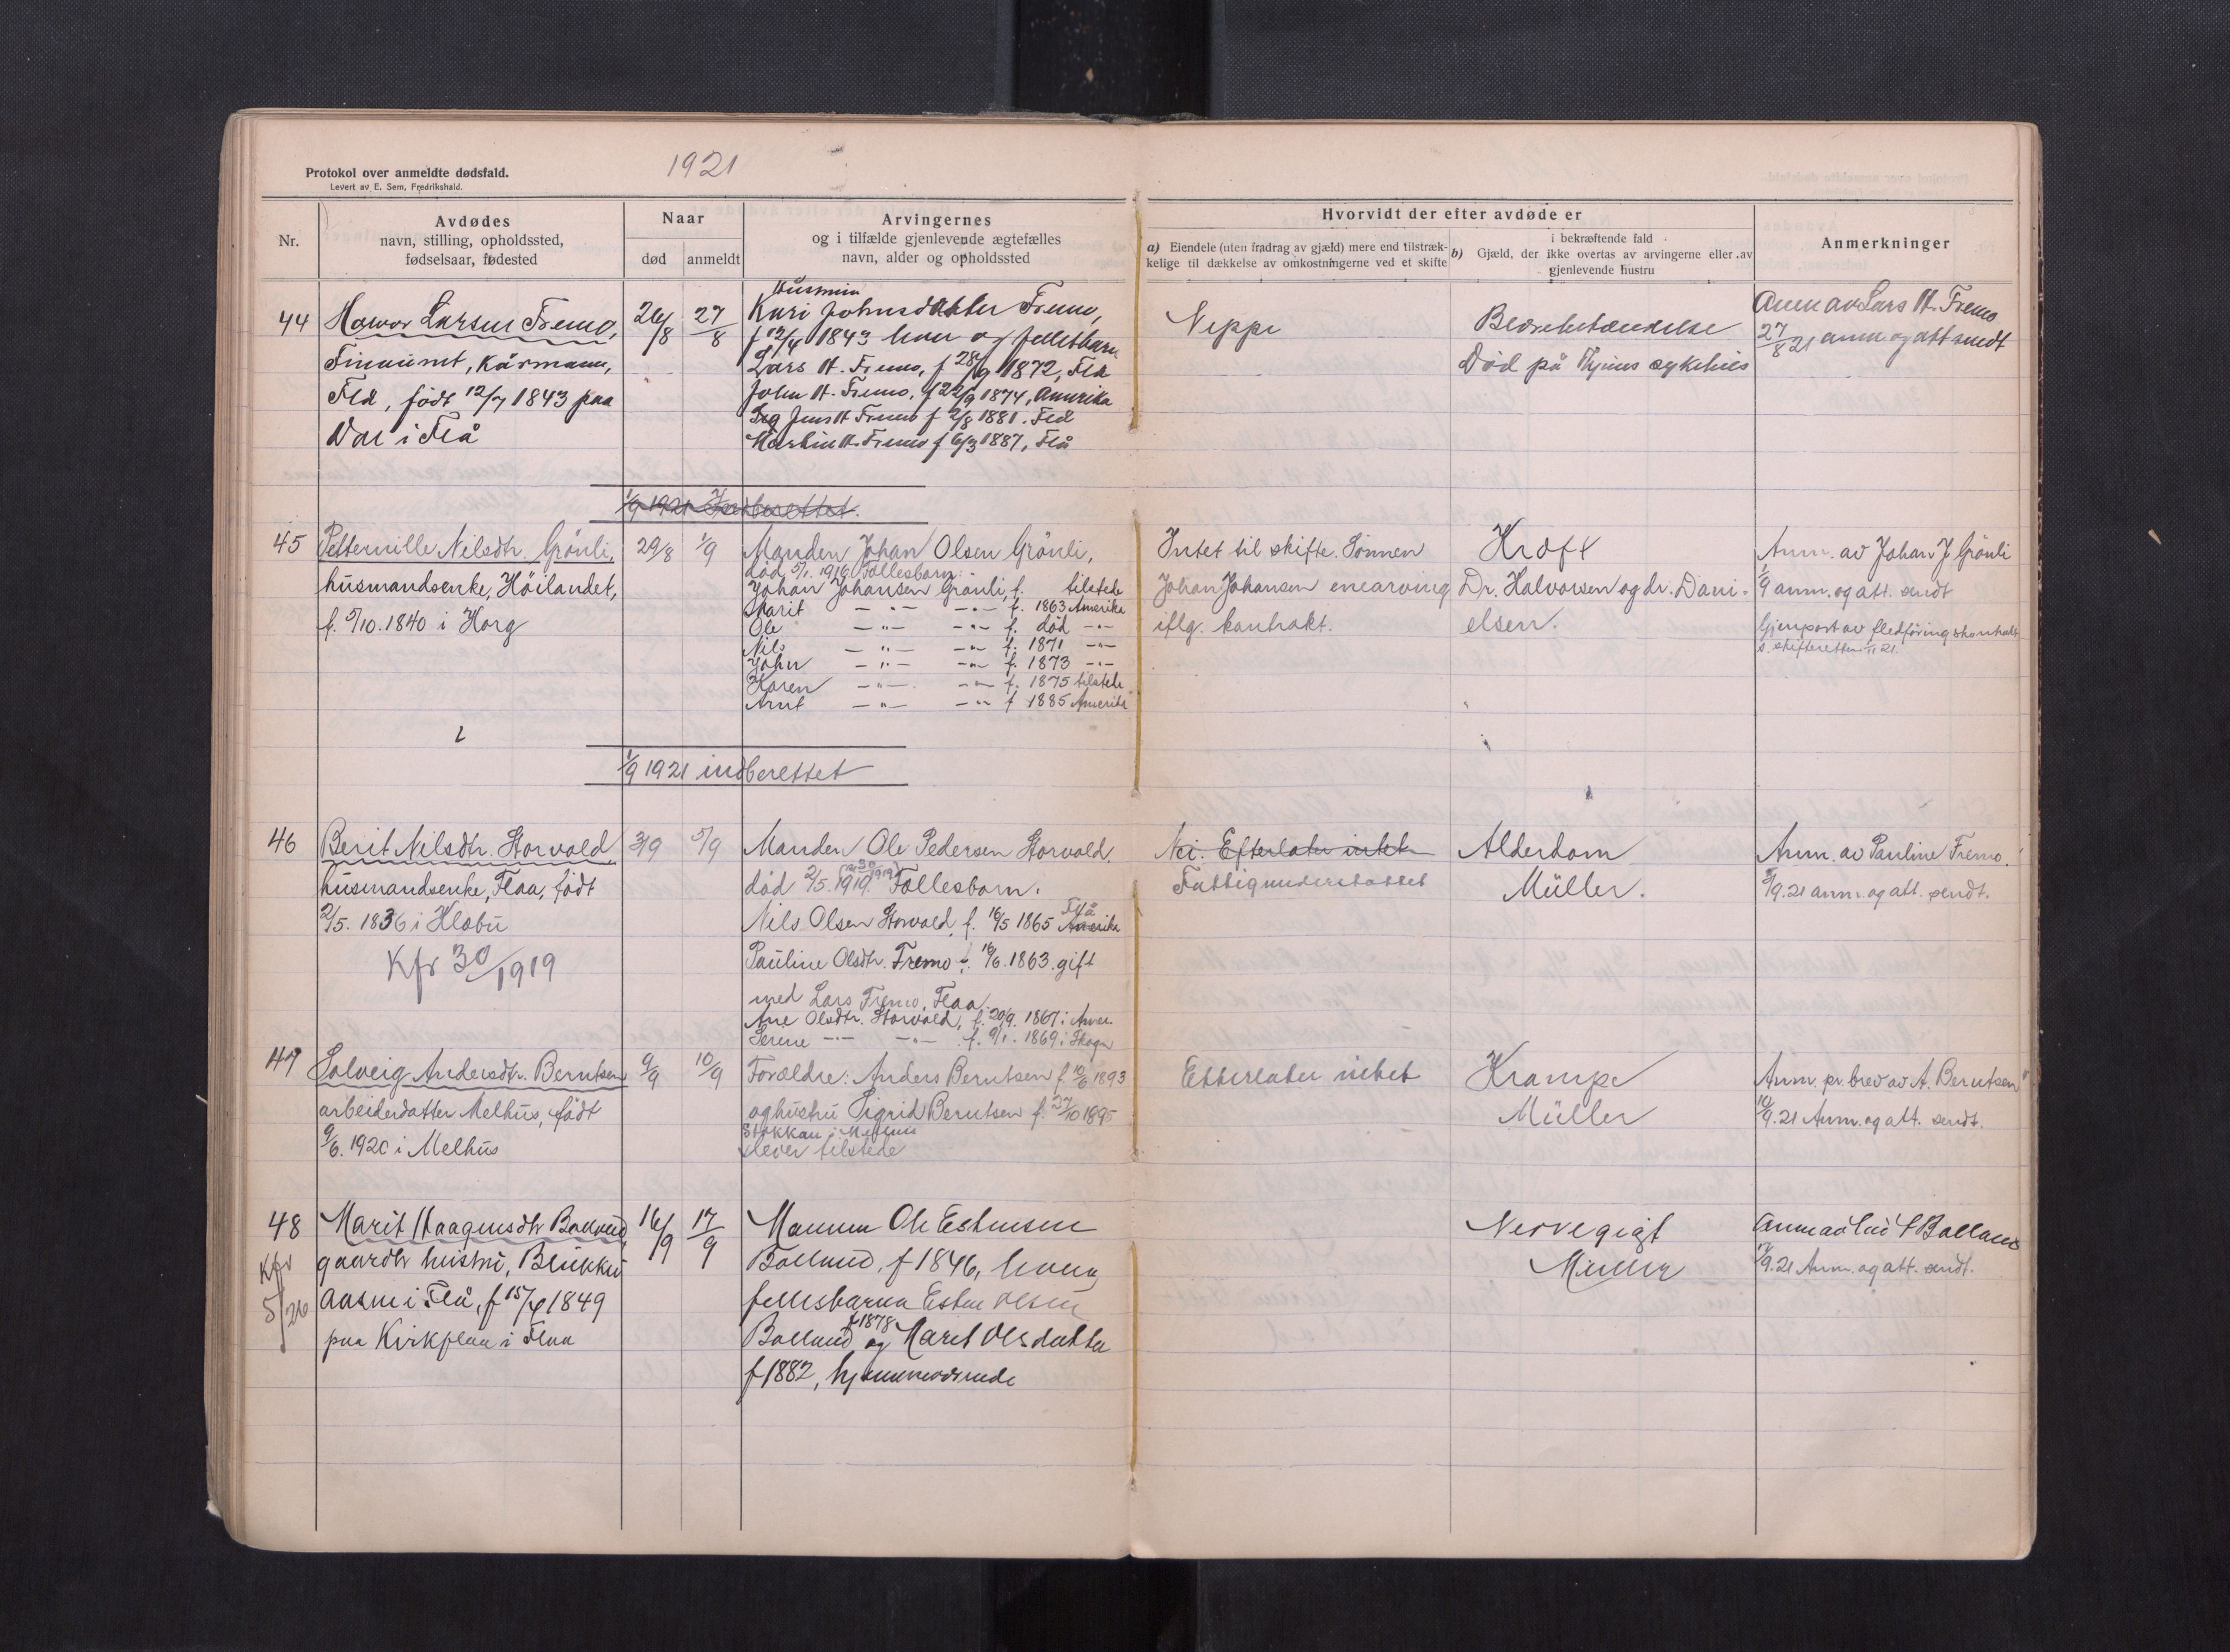 Protokol over anmeldte dødsfald.
Levert av E. Sem, Fredrikshald.
1921
Nr.
Avdødes
navn, stilling, opholdssted,
fødselsaar, fødested
Naar
død
anmeldt
Arvingernes
og i tilfælde gjenlevende ægtefælles
navn, alder og opholdssted
Hvorvidt der efter avdøde er
a) Eiendele (uten fradrag av gjæld) mere end tilstræk-
kelige til dækkelse av omkostningerne ved et skifte
b) i bekræftende fald
Gjæld, der ikke overtas av arvingerne eller av
gjenlevende hustru
Anmerkninger
44
Havor Larsen Fremo,
kårmann,
Flå, født 12/7 1843 paa
i Flå
26/8
27/8
Hustruen
Kari Johnsdatter Fremo,
f 12/4 1843 hver og fellesbarn
Lars H. Fremo, f 28/9 1872, Flå
John H. Fremo, f 22/9 1874, Amerika
Jens H Fremo f 2/8 1881. Flå
Martin H. Fremo f 6/3 1887, Flå
Neppe
Død på sykehus
Anm av Lars H. Fremo
27/8 21 anm og att sendt
1/9 1921 Indberettet.
45
Petternille Nilsdtr. Grönli,
husmandsenke, Höilandet,
f. 5/10. 1840 i Horg
29/8
1/9
Manden Johan Olsen Grönli,
död 5/1. 1916 Fællesbarn:
Johan Johansen Grönli, f. tilstede
Marit -"- -"- f. 1863 Amerika
Ole -"- -"- f. död -"-
Nils -"- -"- f. 1871 -"-
John -"- -"- f. 1873 -"-
Karen -"- -"- f. 1875 tilstede
Arnt -"- -"- f 1885 Amerika
Intet til skifte. Sönnen
Johan Johansen enearving
iflg. kontrakt.
Kræft
Dr. Halvorsen og dr. Dani-
elsen.
Anm. av Johan J Grönli
1/9 anm. og att. sendt
Gjenpart av fledföringskontrakt
s. skifteretten 1/11 21.
1/9 1921 indberettet
46
Berit Nilsdtr. Storvold
husmandsenke, Flaa, födt
2/5. 1836 i Klæbu
Kfr 30/1919
3/9
5/9
Manden Ole Pedersen Storvold,
död 2/5. 1919. Fællesbarn.
Nils Olsen Storvold, f. 16/5 1865 Amerika Flå
Pauline Olsdtr. Fremo f. 16/6. 1863. gift
med Lars Fremo, Flaa
Ane Olsdtr. Storvold, f. 29/9. 1867 i Amer.
Serene -"- -"- f. 9/1. 1869 i Skogn
Nei. Efterlater intet
Fattigunderstøttet
Alderdom
Müller.
Anm. av Pauline Fremo.
5/9.21 anm. og att. sendt.
47
Solveig Andersdtr. Berntsen
arbeiderdatter Melhus, födt
9/6. 1920 i Melhus
9/9
10/9
Forældre: Anders Berntsen f. 10/6 1893
og hustru Sigrid Berntsen f. 27/10 1895
Stokkan i Melhus
tilstede
Efterlater intet
Krampe
Müller
Anm. pr. brev av A. Berntsen
10/9.21 Anm. og att. sendt.
48
Kfr
5/26
Marit Haagensdtr Bollund,
gaardbr hustru,
Aasen i Flå, f 15/4 1849
paa Kirkflaa i Flaa
16/9
17/9
Mannen Ole Estensen
Bollund, f 1846, hver
fellesbarna Esten Olsen
Bollund f 1878 og Marit Olsdatter
f 1882, hjemmeværende
Nervegigt
Müller
17/9.21 Anm. og att. sendt.